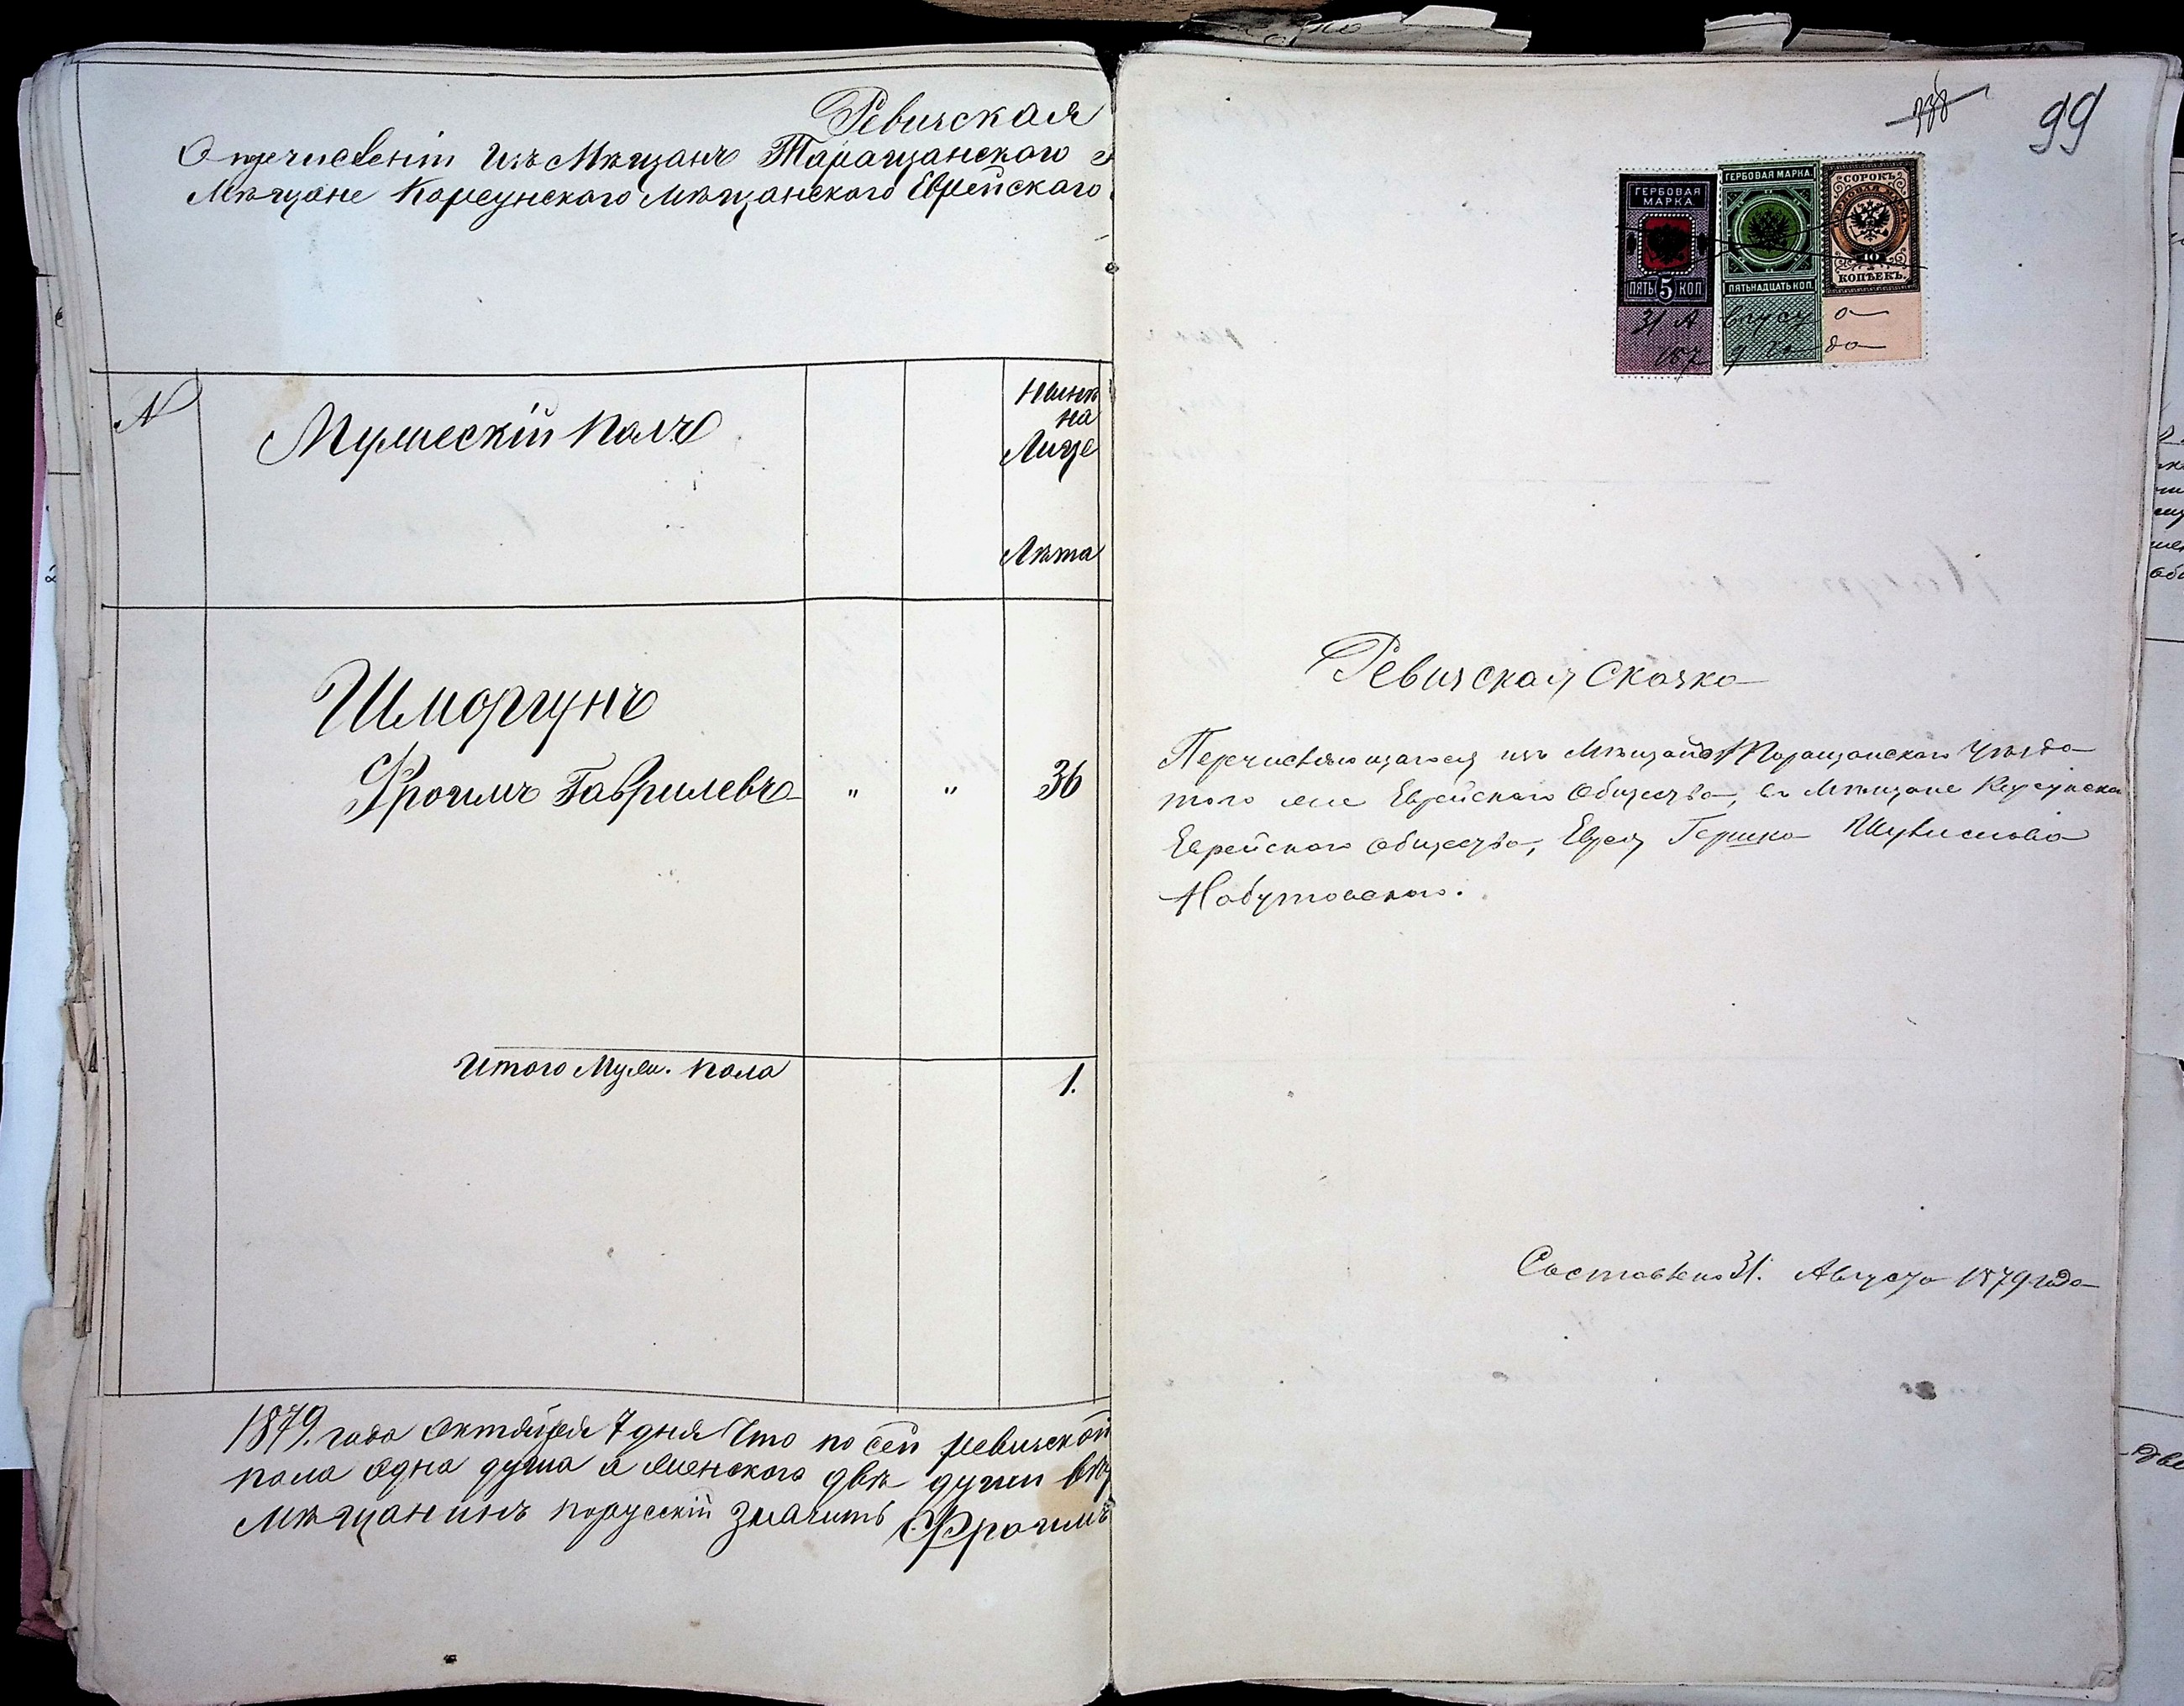 Ревизская
О перечисленіи изъ Мѣщанъ Таращанского
Мѣщане Корсунского Мѣщанского Еврейского
N
Мужескій полъ
Нынѣ
на
Лице
Лѣта
Шморгунъ
Фроимъ Гаврилевъ " " 36
Итого Муж. пола 1.
1879. года Октября 7 дня Что по сей ревизской
пола одна душа а женского двѣ души
Мѣщанинъ порусскій значитъ Фроимъ
99
ГЕРБОВАЯ
МАРКА.
ПЯТЬ 5 КОП
ГЕРБОВАЯ МАРКА.
ПЯТЬНАДЦАТЬ КОП.
СОРОКЪ
40
КОПѢЕКЪ.
31 Августа
1879 года
Ревизская Сказка
Перечисляющагося изъ Мѣщанъ Таращанского Уѣзда
того же Еврейского Общества, въ Мѣщане Корсунска
Еврейского общества, Еврея Гершка Шулимова
Набутовского.
Составлена 31. Августа 1879 года